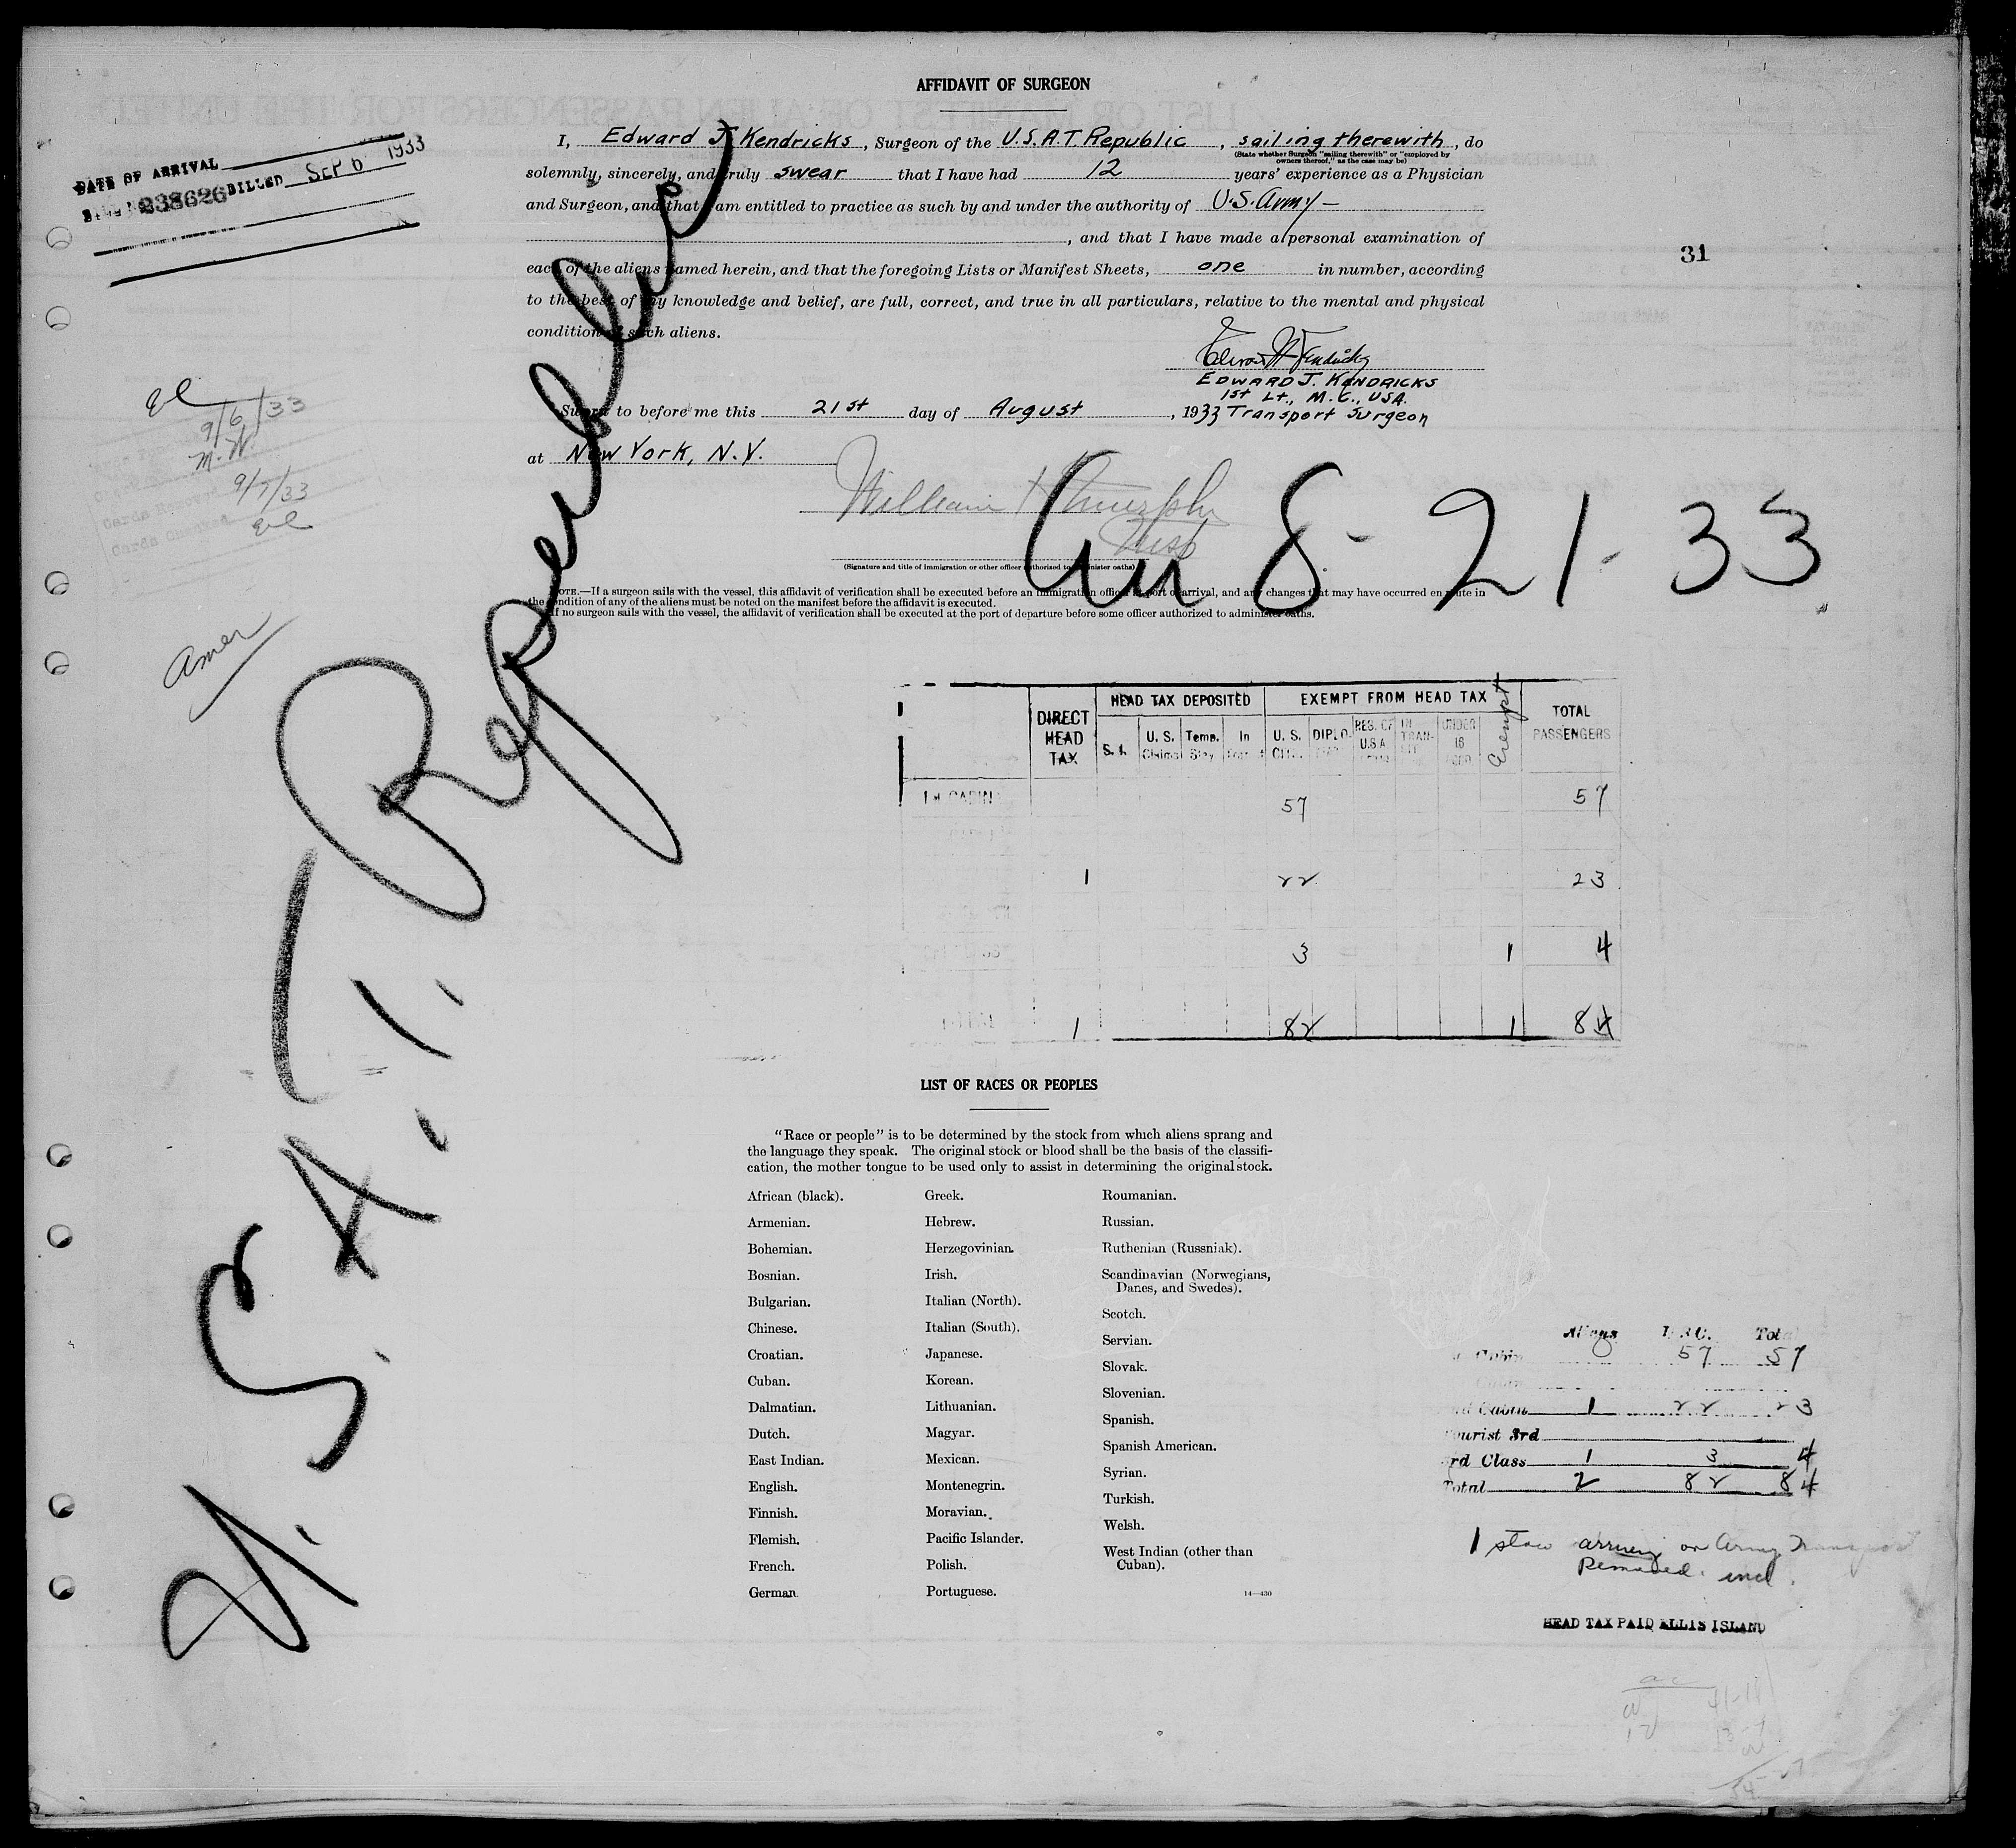 AFFIDAVIT OF SURGEON
DATE OF ARRIVAL
238626 BILLED SEP 6 1933
I, Edward J. Kendricks, Surgeon of the U.S.A.T. Republic, sailing therewith, do
(State whether Surgeon "sailing therewith" or "employed by
owners thereof," as the case may be)
solemnly, sincerely, and truly swear that I have had 12 years' experience as a Physician
and Surgeon, and that I am entitled to practice as such by and under the authority of U.S. Army —
, and that I have made a personal examination of
each of the aliens named herein, and that the foregoing Lists or Manifest Sheets, one in number, according
to the best of my knowledge and belief, are full, correct, and true in all particulars, relative to the mental and physical
condition of such aliens.
31
Edward J Kendricks
EDWARD J. KENDRICKS
1st Lt., M.C., USA.
Sworn to before me this 21st day of August, 1933 Transport Surgeon
at New York, N.Y.
William H Murphy
Insp
(Signature and title of immigration or other officer authorized to administer oaths)
9/6/33
M.W.
9/7/33
Amer
8-21-33
U.S.A.T. Republic
NOTE.—If a surgeon sails with the vessel, this affidavit of verification shall be executed before an immigration officer at port of arrival, and any changes that may have occurred en route in
the condition of any of the aliens must be noted on the manifest before the affidavit is executed.
If no surgeon sails with the vessel, the affidavit of verification shall be executed at the port of departure before some officer authorized to administer oaths.
DIRECT HEAD TAX
HEAD TAX DEPOSITED
EXEMPT FROM HEAD TAX
TOTAL PASSENGERS
S. I. U. S. Temp. Stay In U. S. DIPLO. RES. OF U.S.A. IN TRAN- UNDER 16 Exempt
1st CABIN 57 57
1 22 23
3 1 4
1 82 1 84
LIST OF RACES OR PEOPLES
"Race or people" is to be determined by the stock from which aliens sprang and
the language they speak. The original stock or blood shall be the basis of the classifi-
cation, the mother tongue to be used only to assist in determining the original stock.
African (black).
Armenian.
Bohemian.
Bosnian.
Bulgarian.
Chinese.
Croatian.
Cuban.
Dalmatian.
Dutch.
East Indian.
English.
Finnish.
Flemish.
French.
German
Greek.
Hebrew.
Herzegovinian.
Irish.
Italian (North).
Italian (South).
Japanese.
Korean.
Lithuanian.
Magyar.
Mexican.
Montenegrin.
Moravian.
Pacific Islander.
Polish.
Portuguese.
Roumanian.
Russian.
Ruthenian (Russniak).
Scandinavian (Norwegians,
Danes, and Swedes).
Scotch.
Servian.
Slovak.
Slovenian.
Spanish.
Spanish American.
Syrian.
Turkish.
Welsh.
West Indian (other than
Cuban).
14—430
Aliens U.S.C. Total
Cabin 57 57
Cabin 1 22 23
Tourist 3rd
3rd Class 1 3 4
Total 2 82 84
1 stow arriving on Army Transport
Removed.
HEAD TAX PAID ELLIS ISLAND